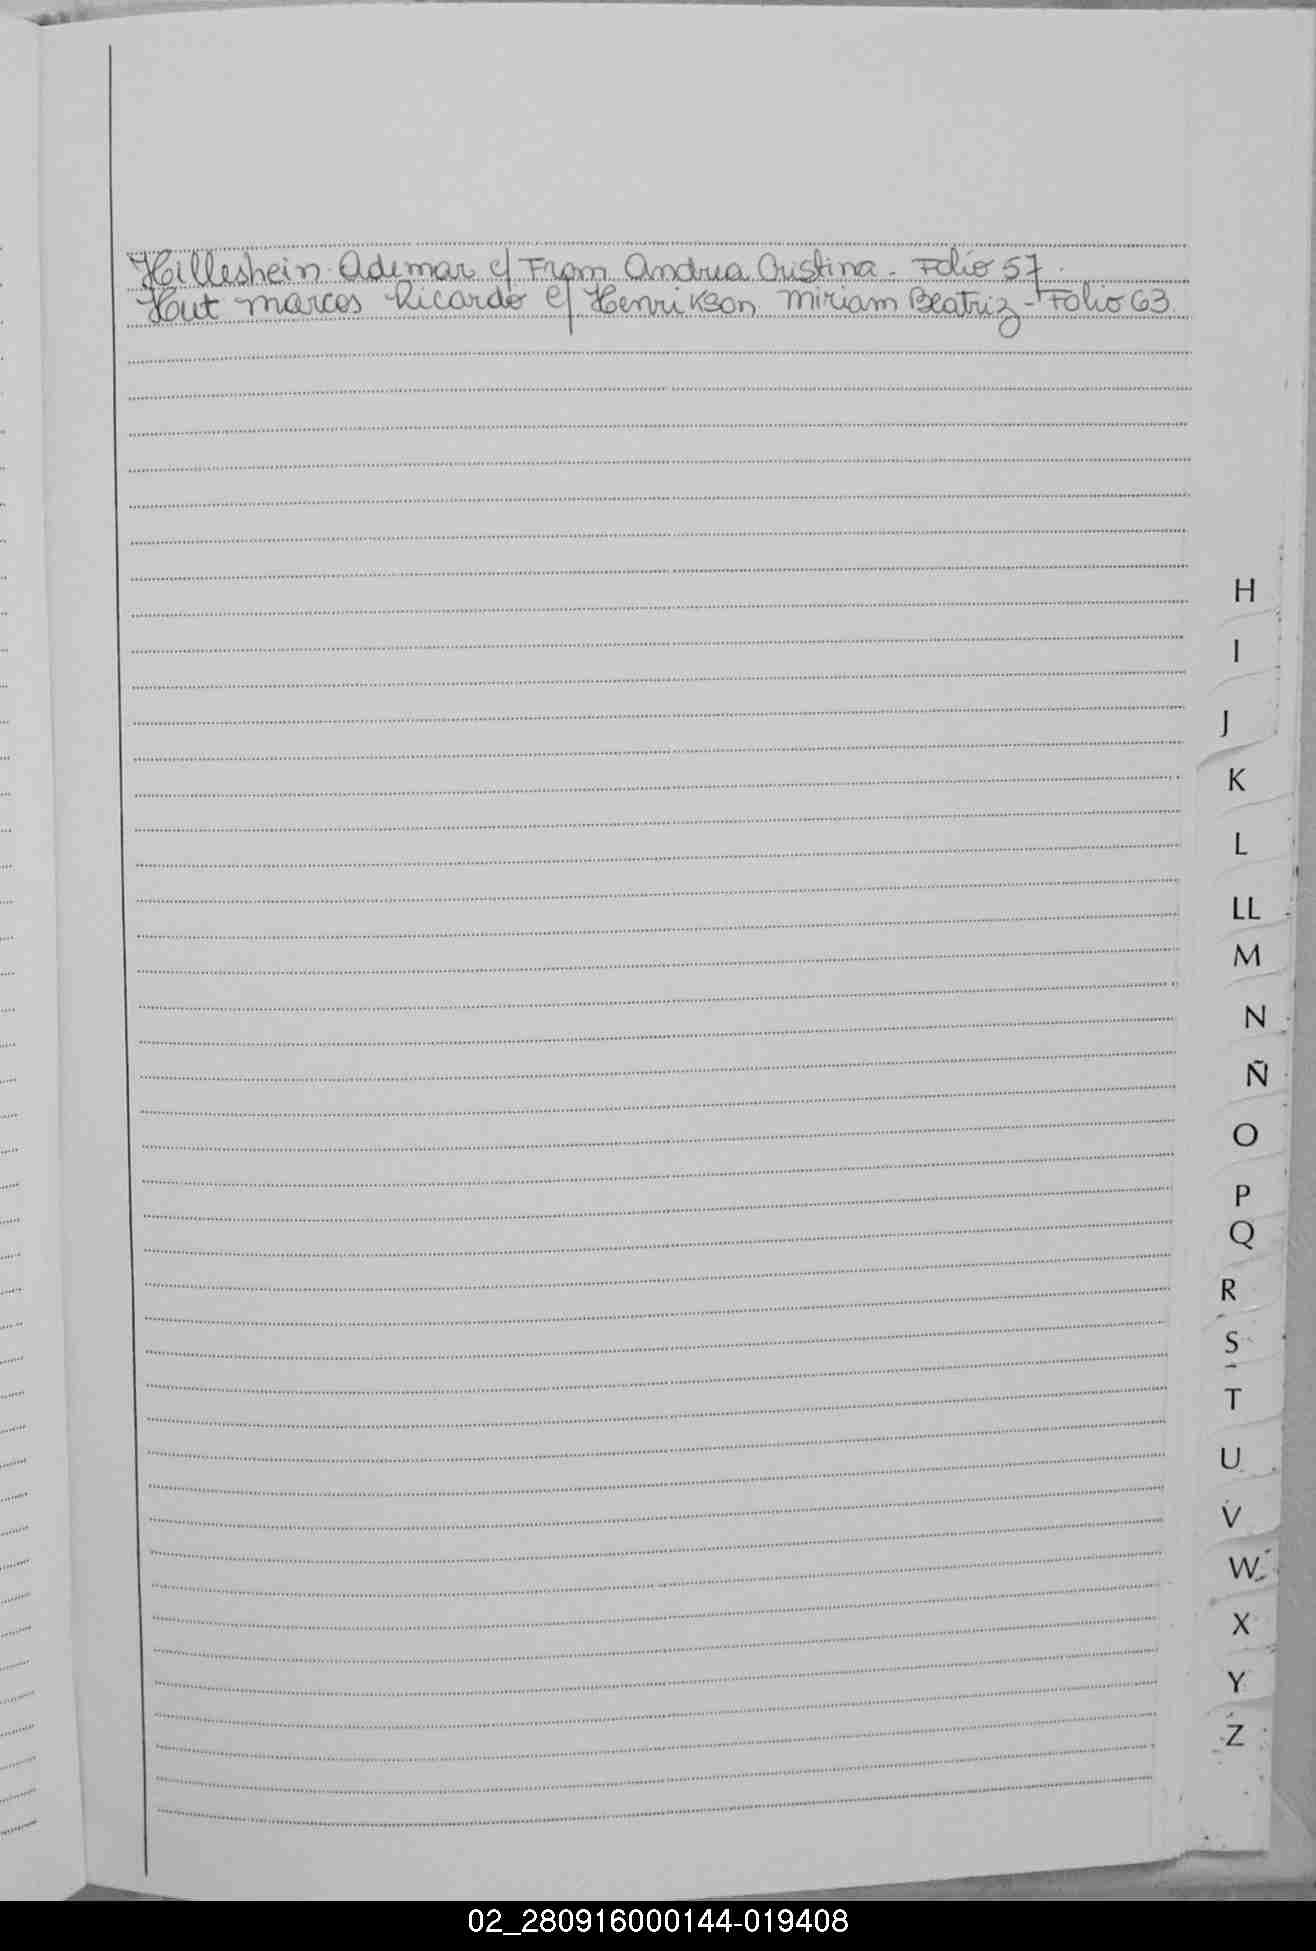 Hilleshein Ademar c/ From Andrea Cristina - Folio 57.
Hut Marcos Ricardo c/ Henrikson Miriam Beatriz - Folio 63.
H
I
J
K
L
LL
M
N
Ñ
O
P
Q
R
S
T
U
V
W
X
Y
Z
02_280916000144-019408